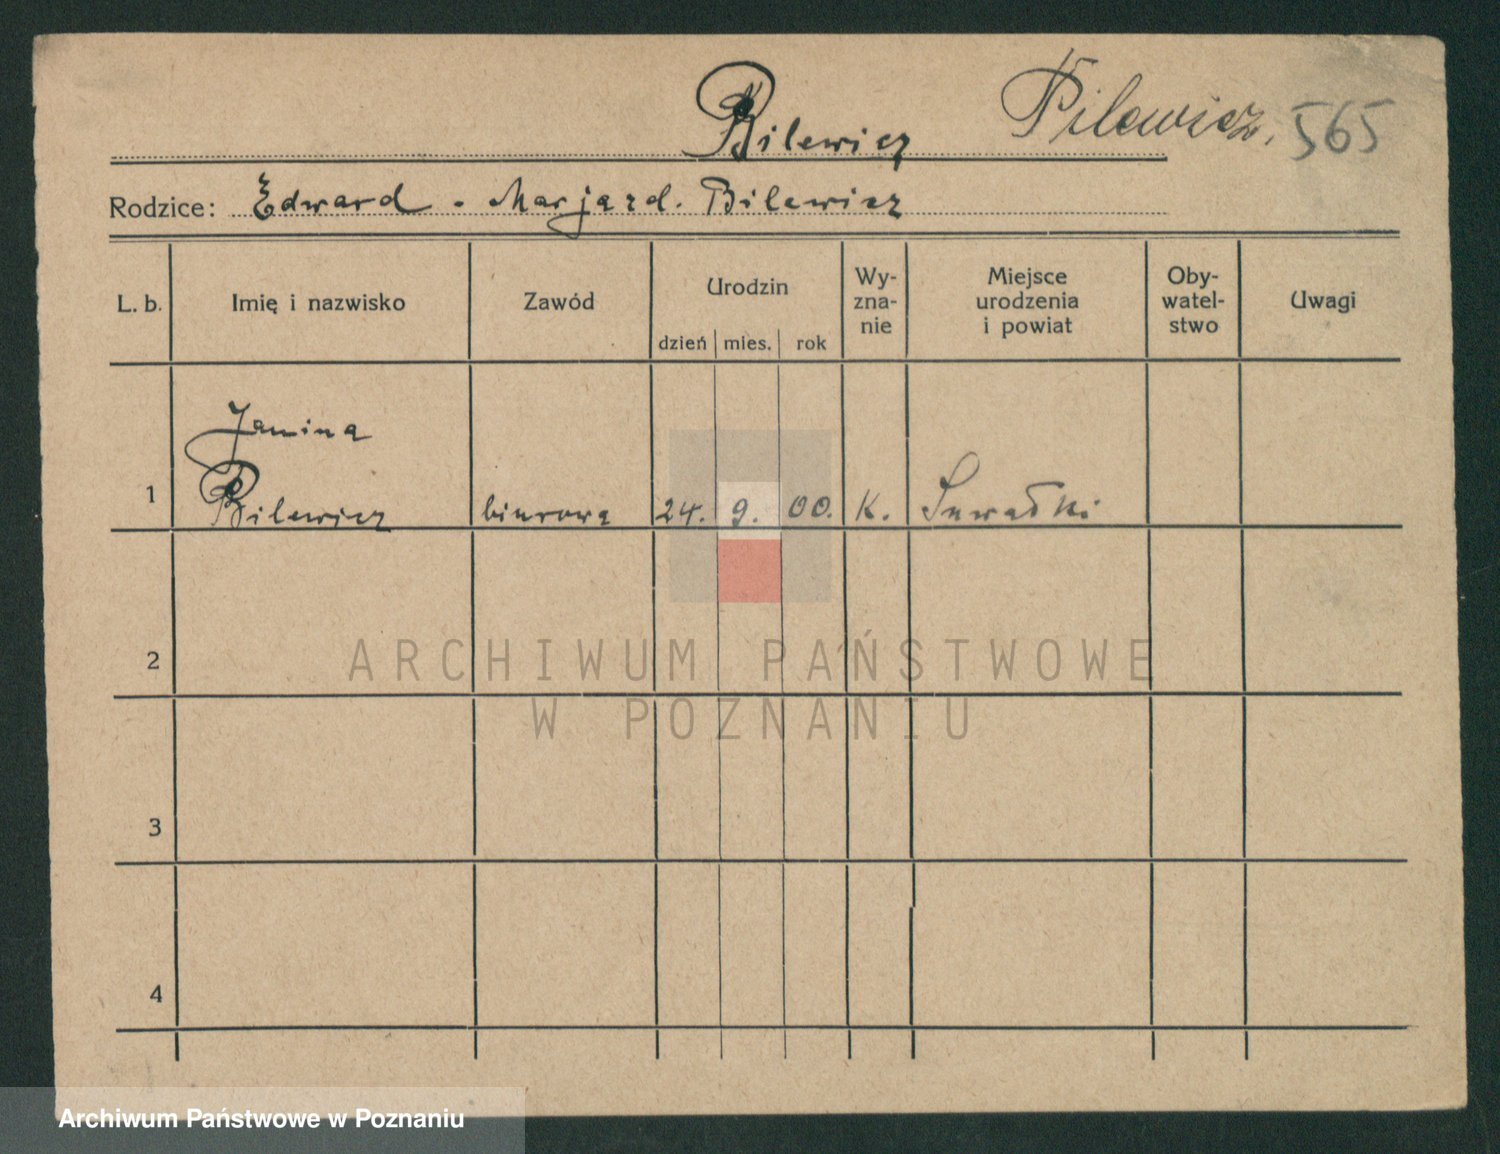 Bilewicz Pilewicz, 565
Rodzice: Edward - Marjazd. Bilewicz
L. b. Imię i nazwisko Zawód Urodzin Wy-zna-nie Miejsce urodzenia i powiat Oby-watel-stwo Uwagi
dzień mies. rok
Janina
1 Bilewicz biurowa 24. 9. 00. K. Suwałki
2
ARCHIWUM PAŃSTWOWE
W POZNANIU
3
4
Archiwum Państwowe w Poznaniu